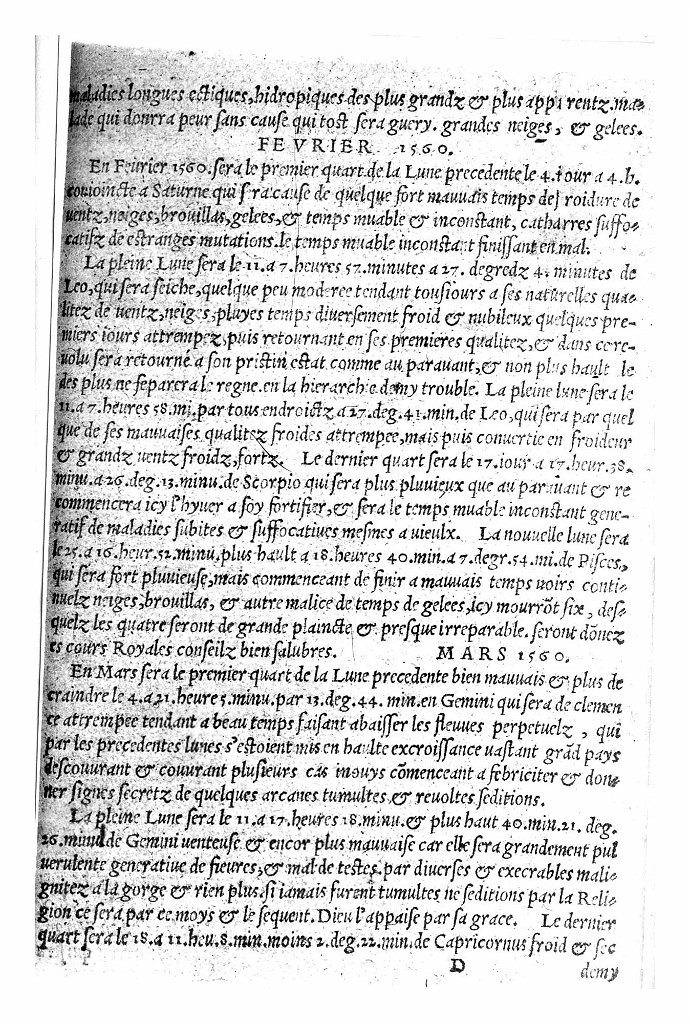 maladies longues ectiques, hidropiques des plus grandz & plus apparentz. ma-
lade qui donrra peur sans cause qui tost sera guery. grandes neiges, & gelees.
FEVRIER 1560.
En Fevrier 1560. sera le premier quart de la Lune precedente le 4. iour a 4. h.
conioincte a Saturne qui sera cause de quelque fort mauvais temps des roidure de
ventz, neiges, brouillas, gelees, & temps muable & inconstant, catharres suffo-
catifz de estranges mutations. le temps muable inconstant finissant en mal.
La pleine Lune sera le 11. a 7. heures 57. minutes a 27. degredz 41 minutes de
Leo, qui sera seiche, quelque peu moderee tendant tousiours a ses naturelles qua-
litez de ventz, neiges, pluyes temps diversement froid & nubileux quelques pre-
miers iours attrempez, puis retournant en ses premieres qualitez, & dans ce re-
volu sera retourné a son pristin estat comme au paravant, & non plus hault le
des plus ne separera le regne. en la hierarchie demy trouble. La pleine lune sera le
11. a 7. heures 58. mi. par tous endroictz a 27. deg. 41. min. de Leo, qui sera par quel
que de ses mauvaises qualitez froides attrempee, mais puis convertie en froideur
& grandz ventz froidz, fortz. Le dernier quart sera le 17. iour a 17. heur. 38.
minu. a 26. deg. 13. minu. de Scorpio qui sera plus pluvieux que au paravant & re
commencera icy l'hyver a soy fortifier, & sera le temps muable inconstant gene-
ratif de maladies subites & suffocatives mesmes a vieulx. La nouvelle lune sera
le 25. a 16. heur. 52. minu. plus hault a 18. heures 40. min. a 7. degr. 54. mi. de Pisces,
qui sera fort pluvieuse, mais commenceant de finir a mauvais temps noirs conti-
nuelz neiges, brouillas, & autre malice de temps de gelees, icy mourrōt six, des-
quelz les quatre seront de grande plaincte & presque irreparable. seront dōnez
es cours Royales conseilz bien salubres. MARS 1560.
En Mars sera le premier quart de la Lune precedente bien mauvais & plus de
craindre le 4. a 21. heure 5. minu. par 13. deg. 44. min. en Gemini qui sera de clemen
ce attrempee tendant a beau temps faisant abaisser les fleuves perpetuelz, qui
par les precedentes lunes s'estoient mis en haulte excroissance vastant grād pays
descouvrant & couvrant plusieurs cas inouys cōmenceant a febriciter & don-
ner signes secretz de quelques arcanes tumultes & revoltes seditions.
La pleine Lune sera le 11. a 17. heures 18. minu. & plus haut 40. min. 21. deg.
26. minu. de Gemini venteuse & encor plus mauvaise car elle sera grandement pul
verulente generative de fievres, & mal de testes. par diverses & execrables mali-
gnitez a la gorge & rien plus. si iamais furent tumultes ne seditions par la Reli-
gion ce sera par ce moys & le sequent. Dieu l'appaise par sa grace. Le dernier
quart sera le 18. a 11. heu. 8. min. moins 2. deg. 22. min. de Capricornus froid & sec
D
demy